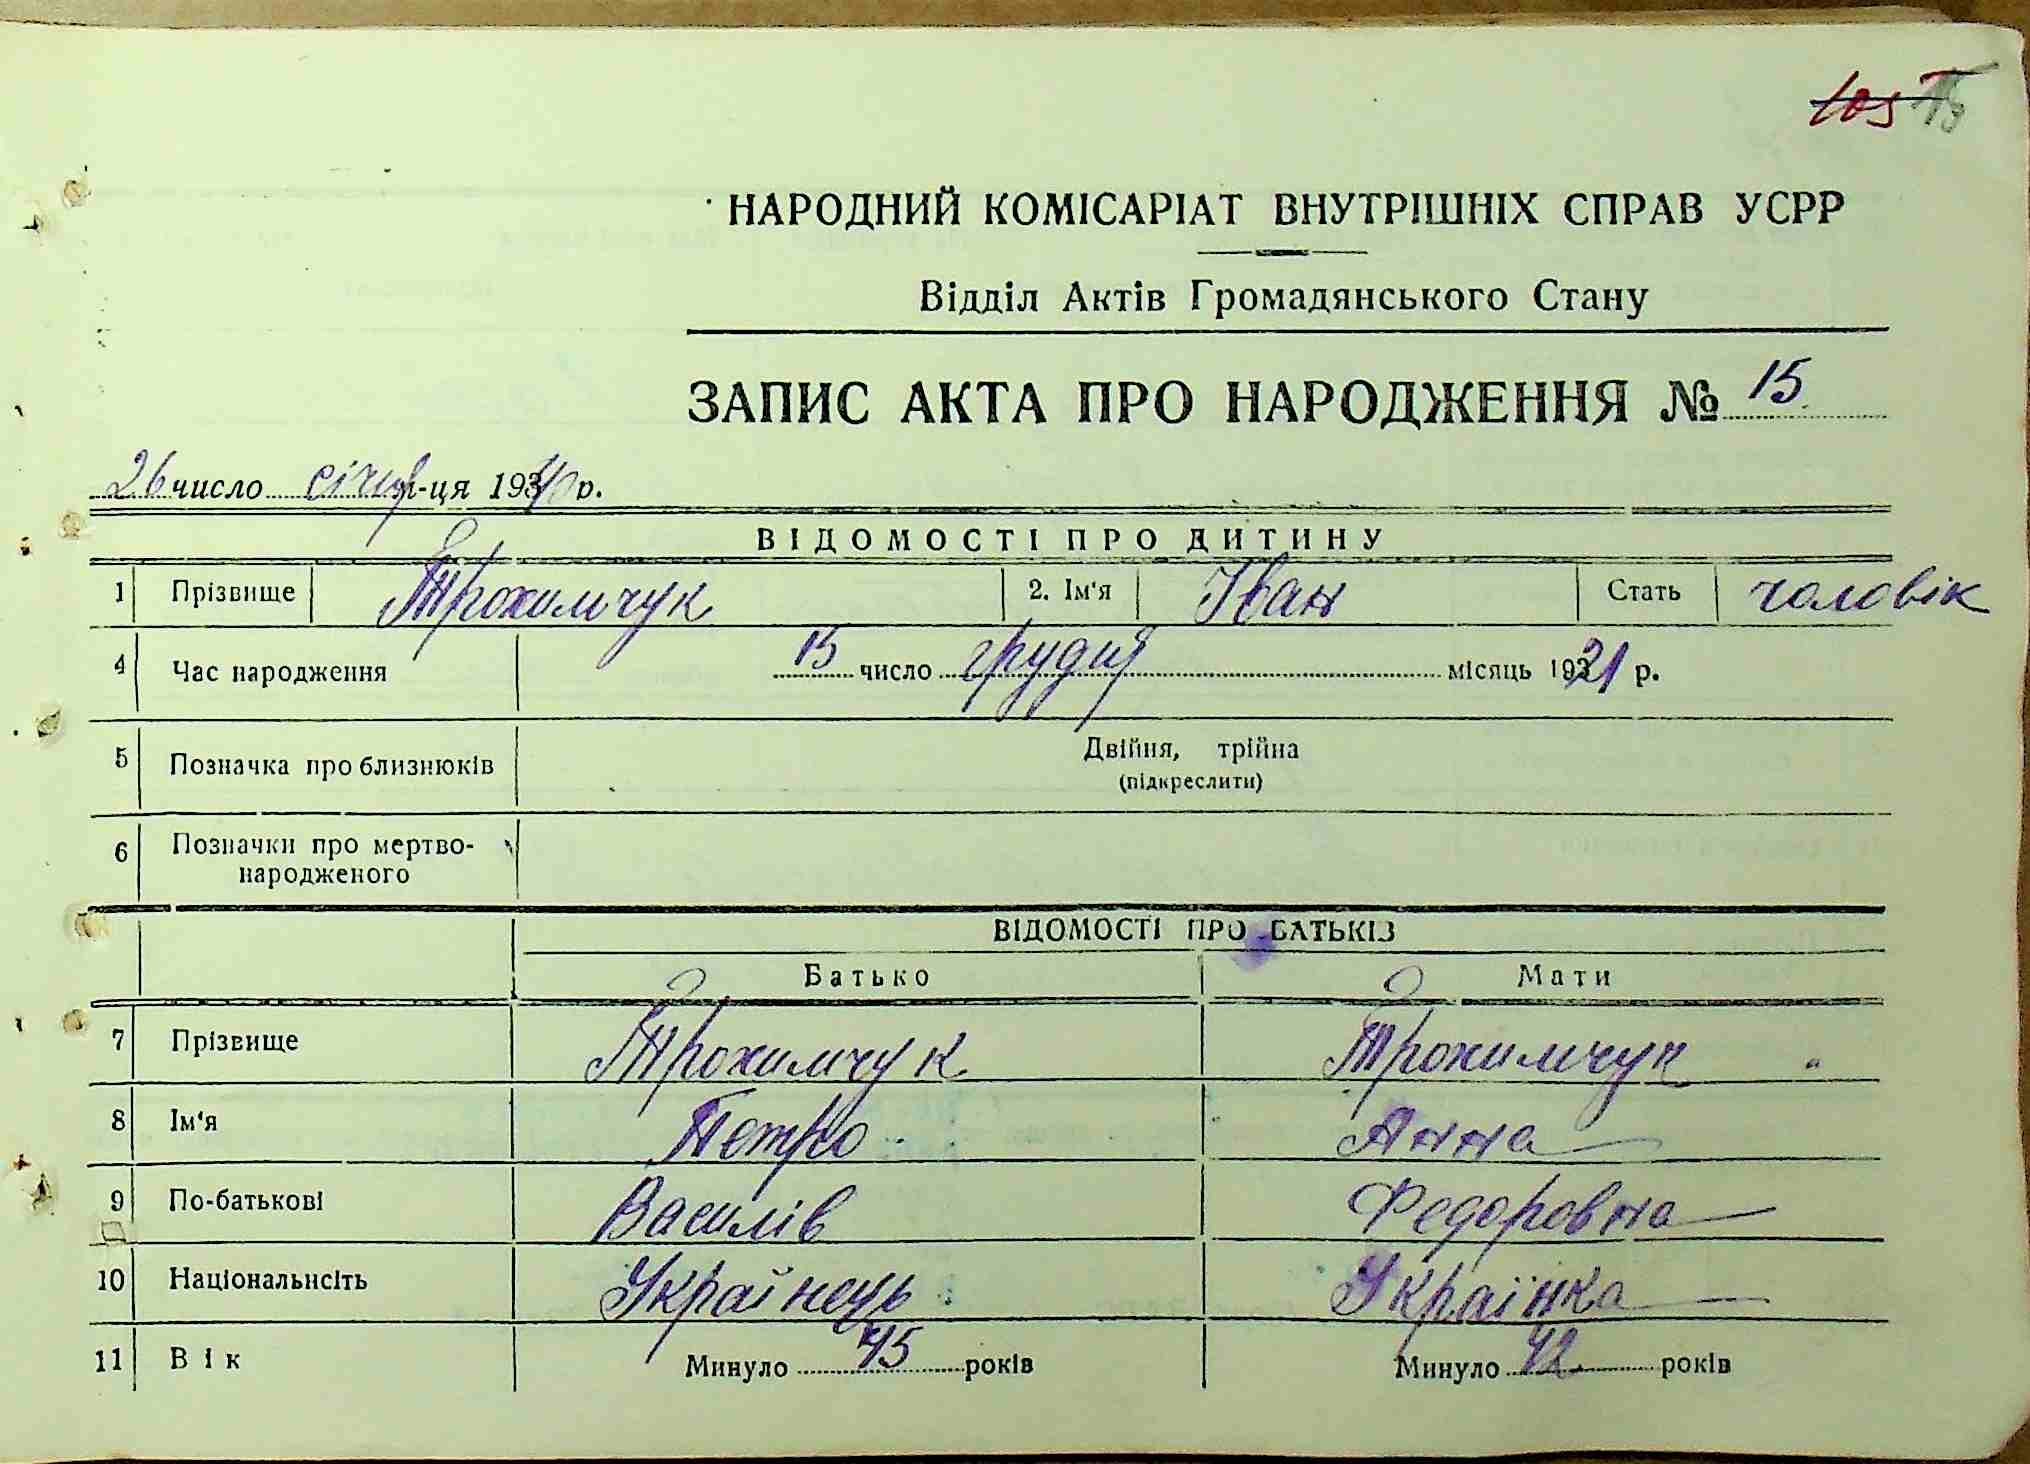 105 15
НАРОДНИЙ КОМІСАРІАТ ВНУТРІШНІХ СПРАВ УСРР
Відділ Актів Громадянського Стану
ЗАПИС АКТА ПРО НАРОДЖЕННЯ № 15
26 число січня м-ця 1940 р.
ВІДОМОСТІ ПРО ДИТИНУ
1 Прізвище Трохимчук 2. Ім'я Іван Стать чоловік
4 Час народження 15 число грудня місяць 1921 р.
5 Позначка про близнюків Двійня, трійна
(підкреслити)
6 Позначки про мертво-
народженого
ВІДОМОСТІ ПРО БАТЬКІВ
Батько Мати
7 Прізвище Трохимчук Трохимчук
8 Ім'я Петро Анна
9 По-батькові Василів Федоровна
10 Національнсіть Українець Українка
11 Вік Минуло 45 років Минуло 42 років